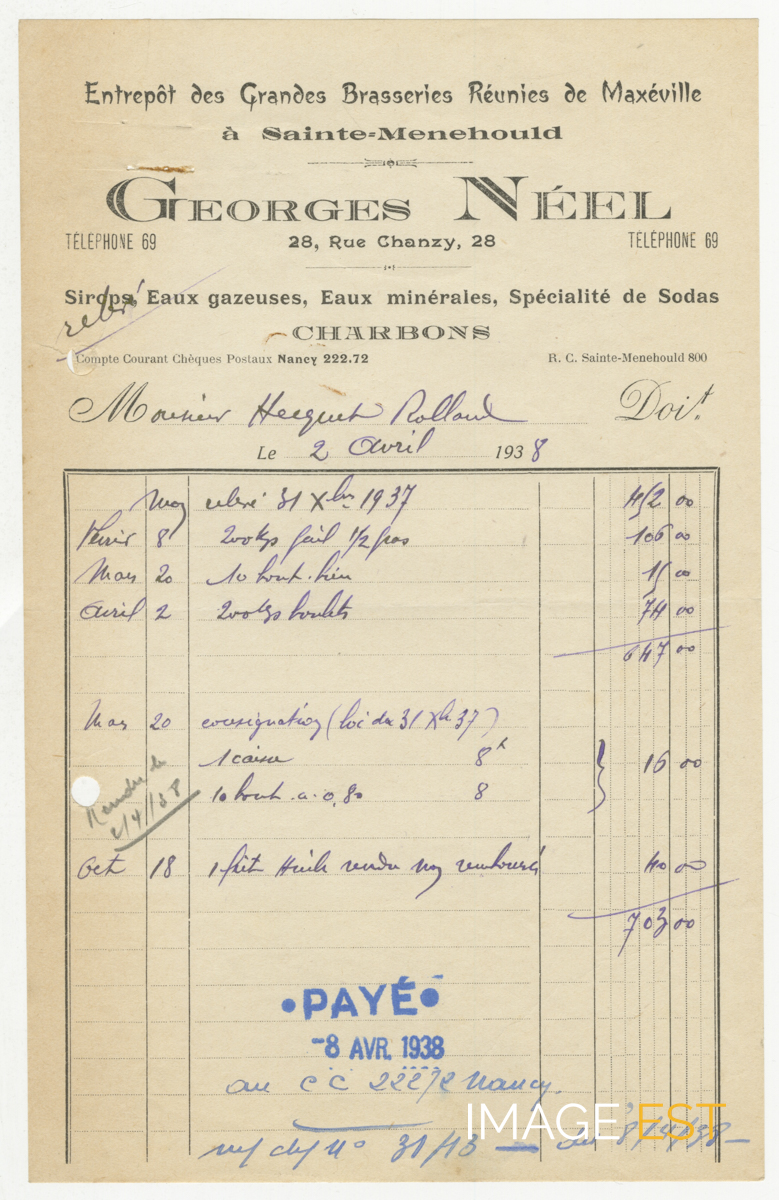 Entrepôt des Grandes Brasseries Réunies de Maxéville
à Sainte-Menehould
GEORGES NÉEL
TÉLÉPHONE 69 28, Rue Chanzy, 28 TÉLÉPHONE 69
Sirops, Eaux gazeuses, Eaux minérales, Spécialité de Sodas
relevé
CHARBONS
Compte Courant Chèques Postaux Nancy 222.72 R. C. Sainte-Menehould 800
Monsieur Hecquet Rolland Doit
Le 2 Avril 1938
relevé 31 Xbre 1937 452 00
Février 8 200 kgs 1/2 gras 106 00
Mars 20 10 bout. bière 15 00
Avril 2 200 kgs boulets 74 00
647 00
Mars 20 consignation (loi du 31 Xbre 37)
1 caisse 8 f
10 bout. a. 0,80 8 } 16 00
Rendu le
2/4/38
Oct 18 1 fût Huile rendu non remboursé 40 00
703 00
•PAYÉ•
-8 AVR. 1938
au CC 22272 Nancy.
n/ ch/ n° 31/13 — du 8/4/38 —
IMAGE'EST